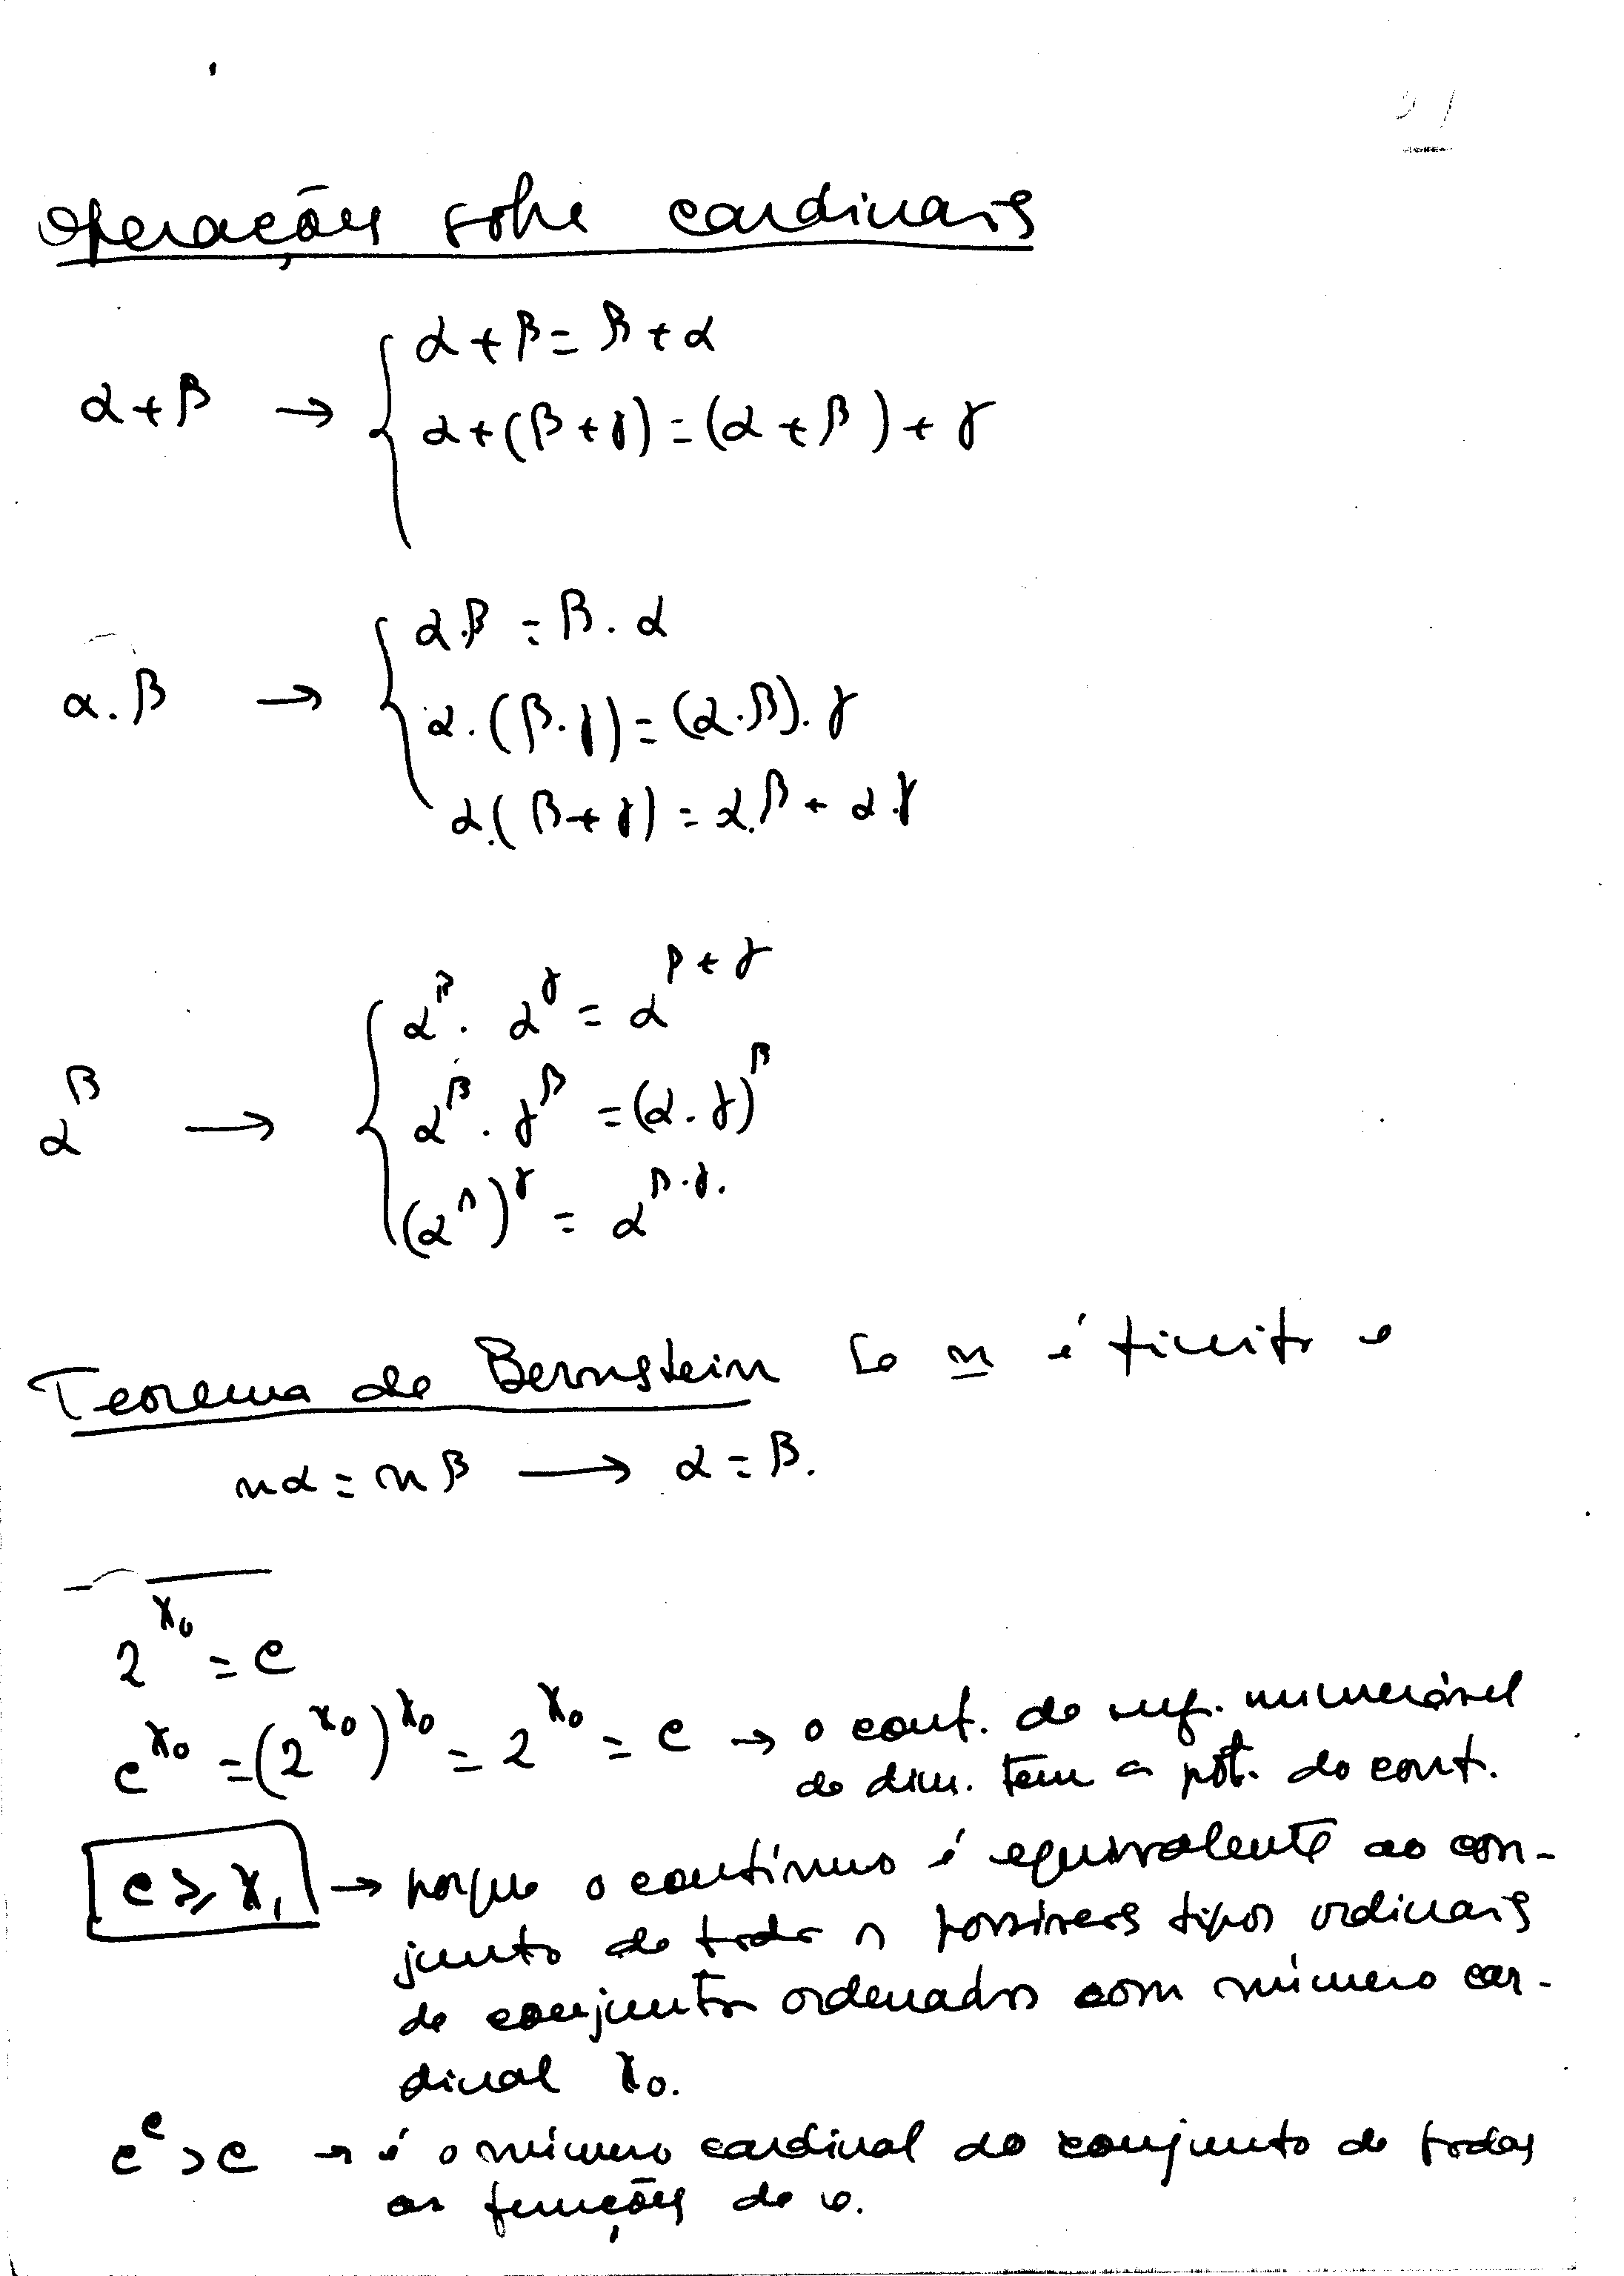 Operações sobre cardinais
α+β → { α+β=β+α
α+(β+γ)=(α+β)+γ
α.β → { α.β=β.α
α.(β.γ)=(α.β).γ
α.(β+γ)=α.β+α.γ
α^β → { α^β. α^γ=α^(β+γ)
α^β.γ^β=(α.γ)^β
(α^β)^γ=α^(β.γ).
Teorema de Bernstein Se n é finito e
nα=nβ → α=β.
2^ℵ₀=c
c^ℵ₀=(2^ℵ₀)^ℵ₀=2^ℵ₀=c → o cont. de inf. numerável
de dim. tem a pot. do cont.
c≥ℵ₁ → porque o contínuo é equivalente ao con-
junto de todos os possíveis tipos ordinais
de conjuntos ordenados com número car-
dinal ℵ₀.
c^c>c → é o número cardinal do conjunto de todas
as funções de